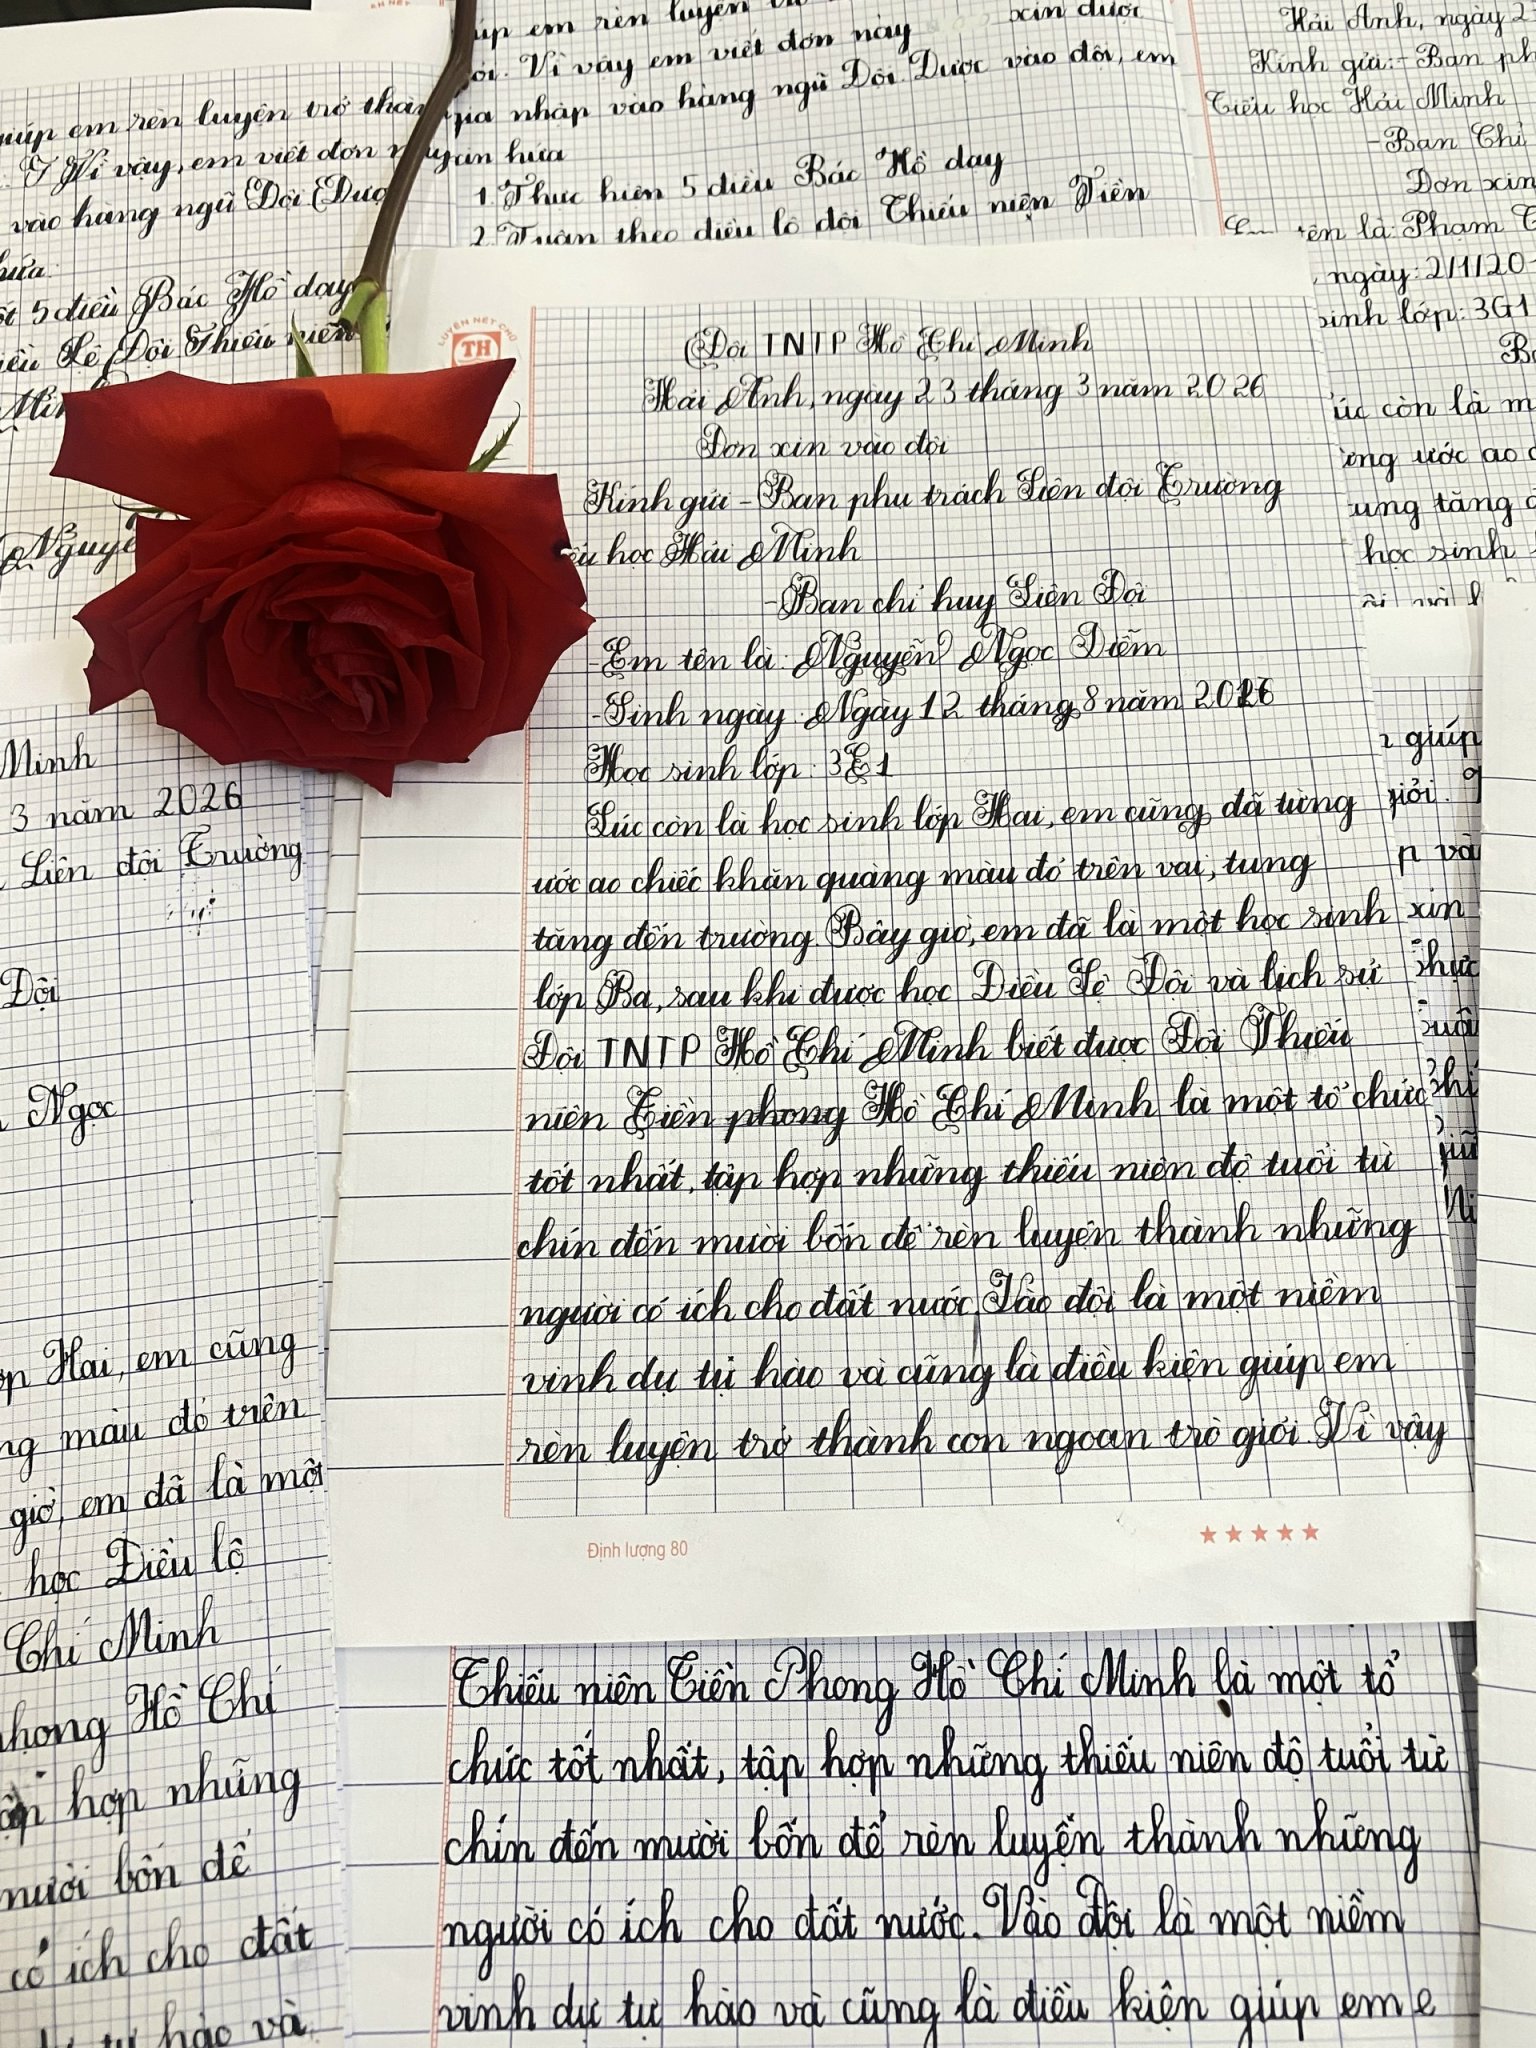 giúp em rèn luyện trở thàn
Vì vậy, em viết đơn này
vào hàng ngũ Đội Được
hứa
5 điều Bác Hồ dạy
Lê Đội Thiếu niên
Nguyễ
em rèn luyện
xin được
Vì vậy em viết đơn này
gia nhập vào hàng ngũ Đội. Được vào đội, em
xin hứa
1. Thực hiện 5 điều Bác Hồ dạy
2. Tuân theo điều lê đội Thiếu niên Tiền
Hải Anh, ngày 2
Kính gửi: - Ban ph
Tiểu học Hải Minh
- Ban Chỉ
Đơn xin
Em tên là: Phạm T
ngày: 2/1/20
sinh lớp: 3G1
úc còn là m
ước ao
tung tăng
học sinh
LUYỆN NÉT CHỮ
TH
Đội TNTP Hồ Chí Minh
Hải Anh, ngày 23 tháng 3 năm 2026
Đơn xin vào đội
Kính gửi - Ban phụ trách Liên đội Trường
ểu học Hải Minh
- Ban chỉ huy Liên Đội
- Em tên là: Nguyễn Ngọc Diễm
- Sinh ngày: Ngày 12 tháng 8 năm
Học sinh lớp: 3E1
Lúc còn là học sinh lớp Hai, em cũng đã từng
ước ao chiếc khăn quàng màu đỏ trên vai, tung
tăng đến trường. Bây giờ, em đã là một học sinh
lớp Ba, sau khi được học Điều Lệ Đội và lịch sử
Đội TNTP Hồ Chí Minh biết được Đội Thiếu
niên Tiền phong Hồ Chí Minh là một tổ chức
tốt nhất, tập hợp những thiếu niên độ tuổi từ
chín đến mười bốn để rèn luyện thành những
người có ích cho đất nước. Vào đội là một niềm
vinh dự tự hào và cũng là điều kiện giúp em
rèn luyện trở thành con ngoan trò giỏi. Vì vậy
Định lượng 80
giúp
giỏi.
xin
Minh
3 năm 2026
Liên đội Trường
Đội
Ngọc
Hai, em cũng
màu đỏ trên
giờ, em đã là một
học Điều lệ
Chí Minh
phong Hồ Chí
hợp những
mười bốn để
có ích cho đất
tự hào và
Thiếu niên Tiền Phong Hồ Chí Minh là một tổ
chức tốt nhất, tập hợp những thiếu niên độ tuổi từ
chín đến mười bốn để rèn luyện thành những
người có ích cho đất nước. Vào Đội là một niềm
vinh dự tự hào và cũng là điều kiện giúp em e